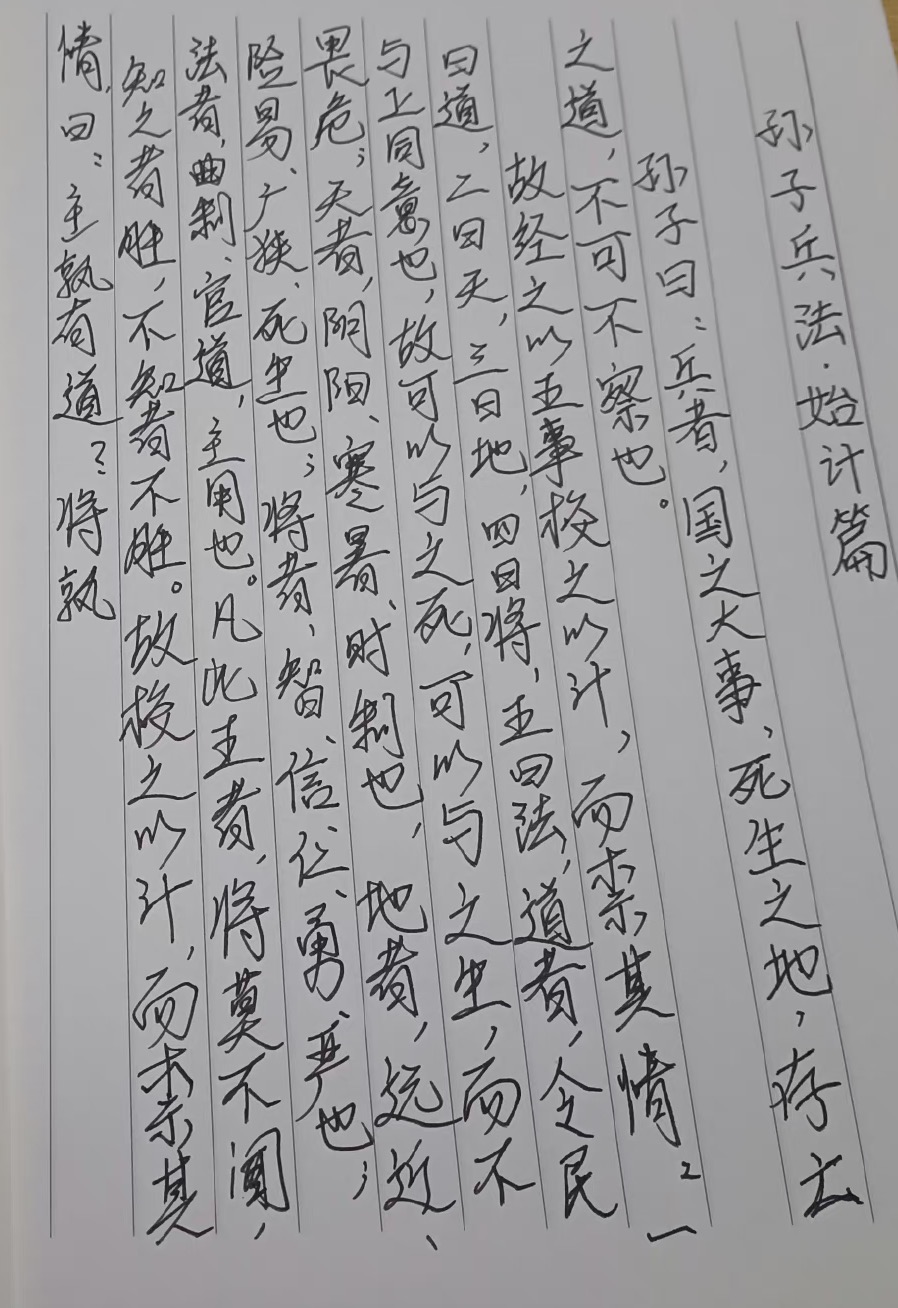 孙子兵法·始计篇
孙子曰：兵者，国之大事、死生之地，存亡
之道，不可不察也。
故经之以五事校之以计，而索其情。：一
曰道，二曰天，三曰地，四曰将，五曰法，道者，令民
与上同意也，故可以与之死，可以与之生，而不
畏危；天者，阴阳、寒暑、时制也，地者，远近、
险易、广狭、死生也；将者，智、信、仁、勇、严也；
法者，曲制、官道，主用也。凡此五者，将莫不闻，
知之者胜，不知者不胜。故校之以计，而索其
情，曰：主孰有道？将孰